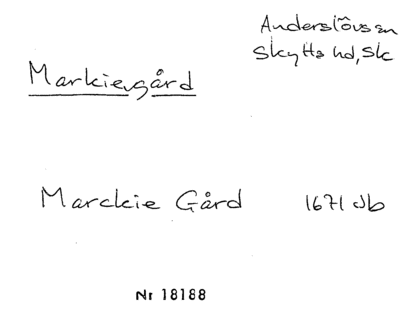 Anderslövs sn
Skytts hd, Sk
Markievgård
Marckie Gård 1671 Jb
Nr 18188